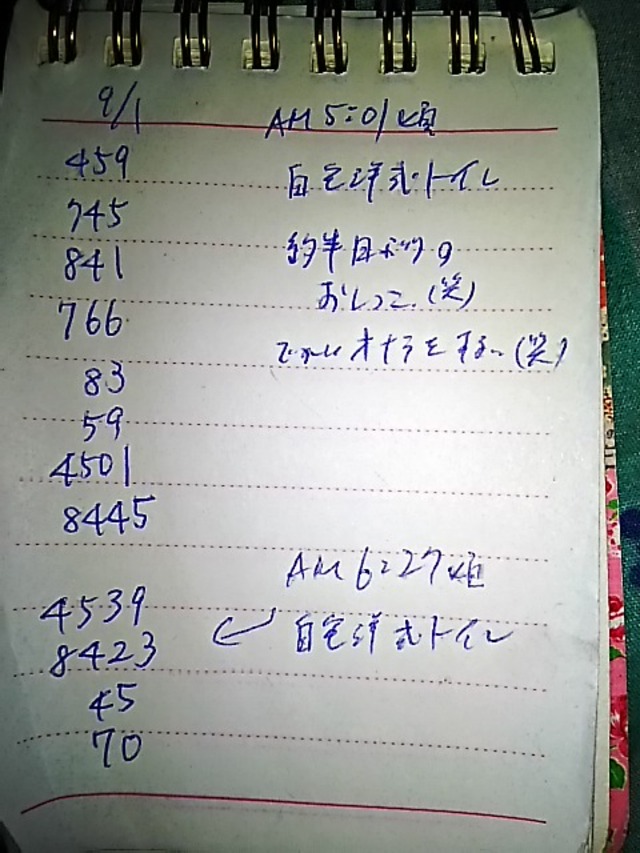 9/1
AM 5:01頃
459
自宅洋式トイレ
745
841
約半目ボツの
おしっこ(笑)
766
オナラをする(笑)
83
59
4501
8445
AM 6:27頃
4539
自宅洋式トイレ
8423
45
70